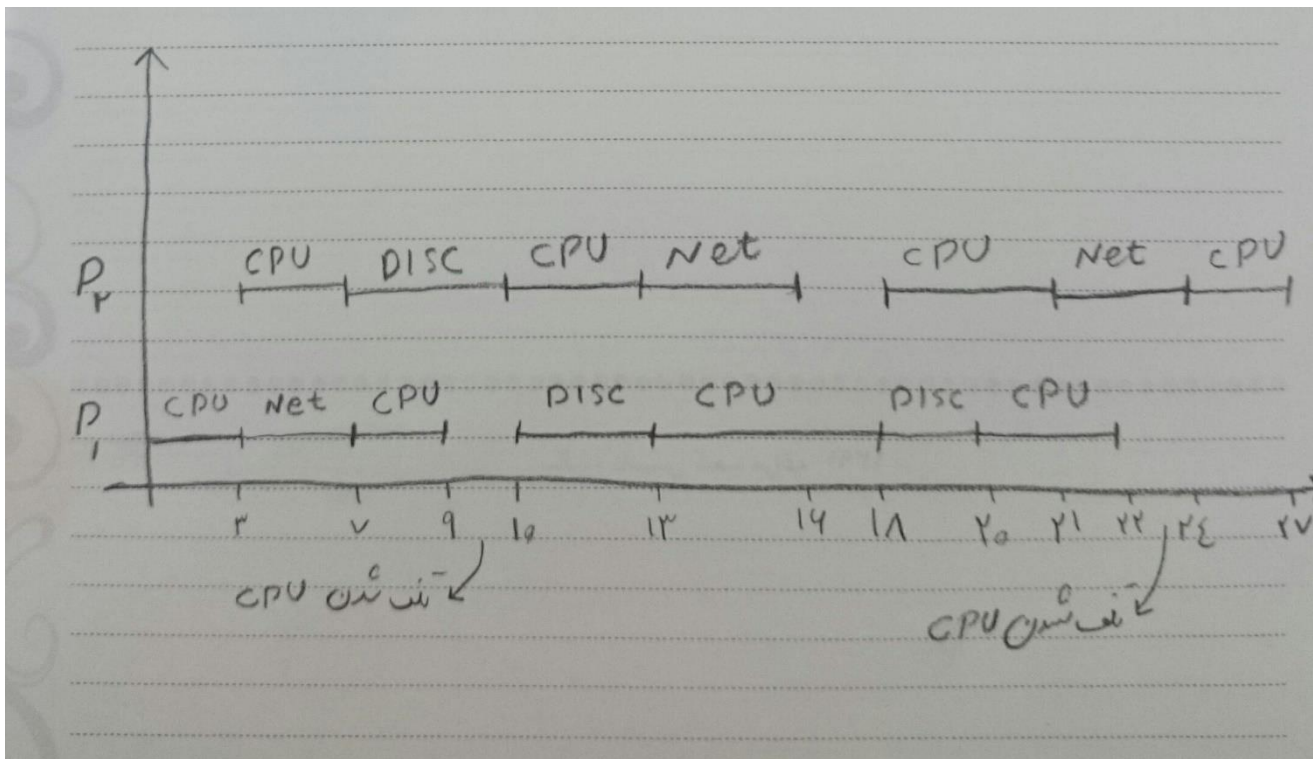 CPU DISC CPU Net CPU Net CPU
P۲
CPU Net CPU DISC CPU DISC CPU
P۱
۳ ۷ ۹ ۱۰ ۱۳ ۱۶ ۱۸ ۲۰ ۲۱ ۲۲ ۲۴ ۲۷
تلف شدن CPU
تلف شدن CPU